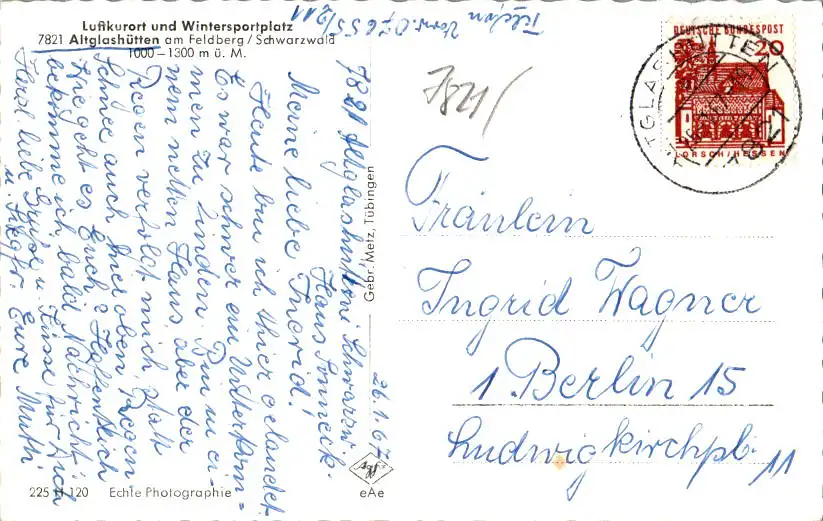 Luftkurort und Wintersportplatz
7821 Altglashütten am Feldberg / Schwarzwald
1000–1300 m ü. M.
Telefon Vorw. 07655/211
7821 Altglashütten Schwarzw.
Haus Sonneck.
26.1.67
Meine liebe Ingrid!
Heute bin ich hier gelandet
Es war schwer ein Unterkom=
men zu finden. Bin in ei=
nem netten Haus, aber der
Regen verfolgt mich, statt
Schnee auch hier oben Regen
Wie geht es Euch? Hoffentlich
bekomme ich bald Nachricht
liebe Grüße u. Küsse für Dich
u. Eure Mutti
225 H 120 Echte Photographie
Gebr. Metz, Tübingen
agfa
eAe
7821/
DEUTSCHE BUNDESPOST
20
LORSCH/HESSEN
Fräulein
Ingrid Wagner
1 Berlin 15
Ludwigkirchpl. 11